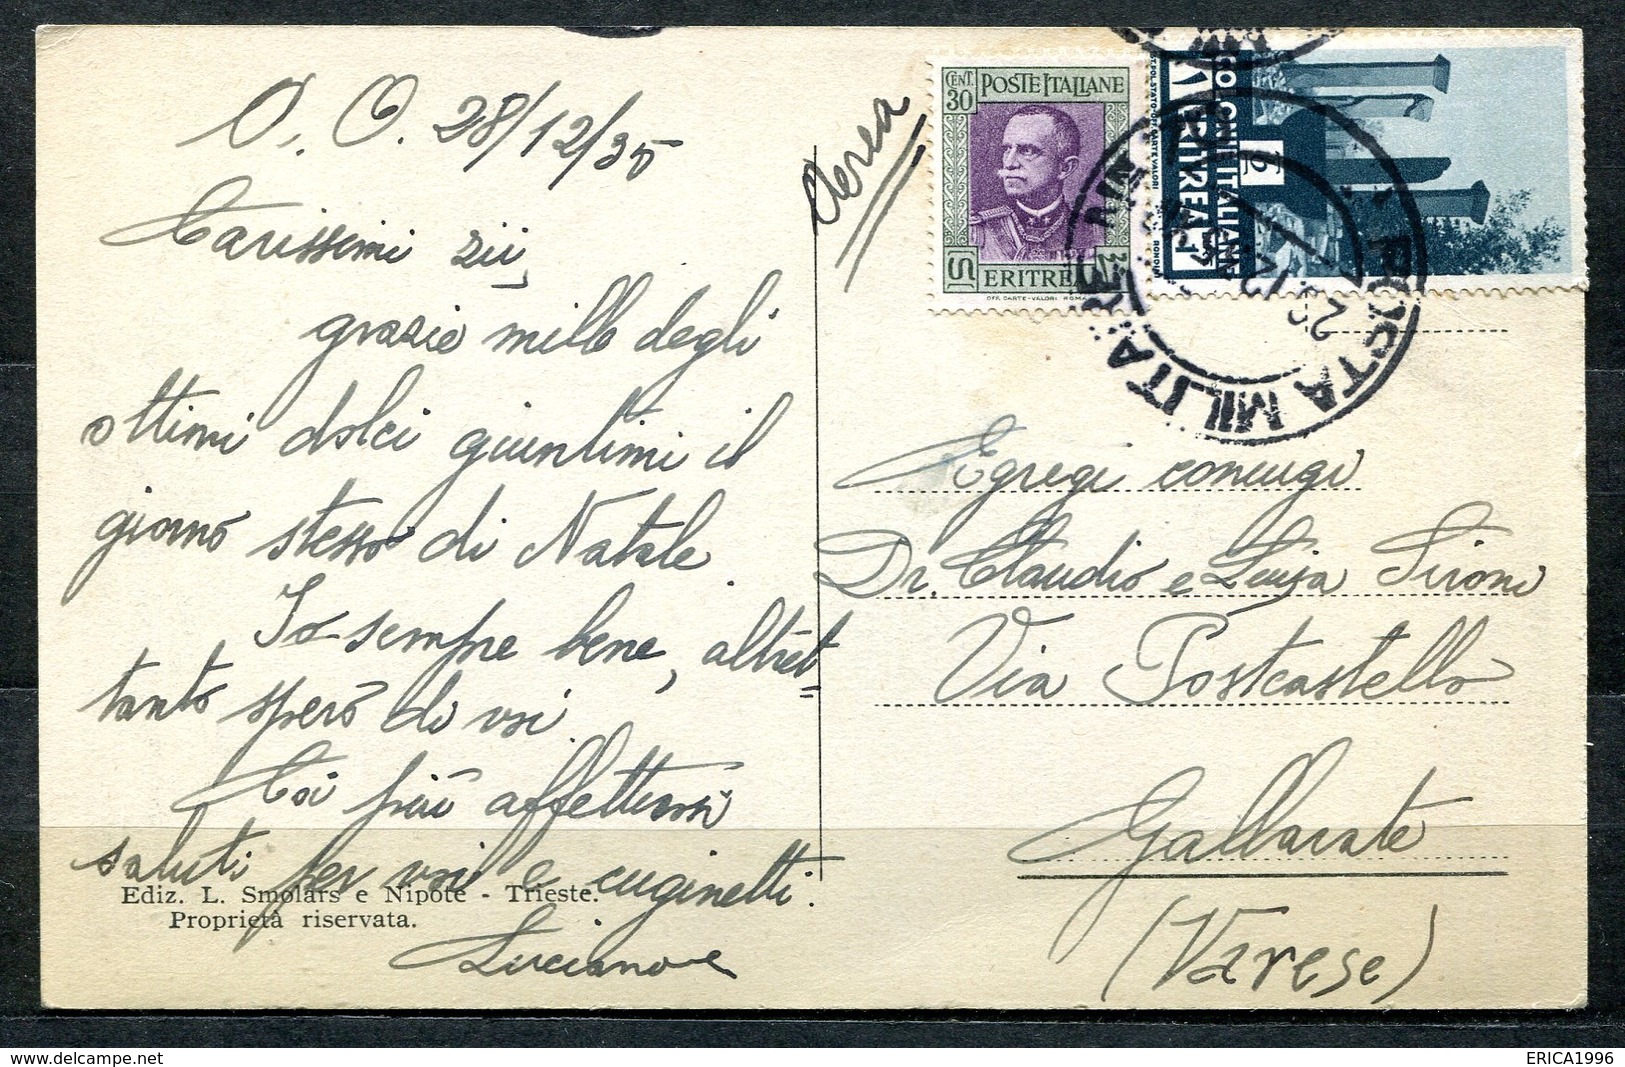 A. O. 28/12/35
Carissimi zii,
grazie mille degli
ottimi dolci giuntimi il
giorno stesso di Natale.
Io sempre bene, altret-
tanto spero di voi.
Coi più affettuosi
saluti per voi e cuginetti.
Luciano
Ediz. L. Smolars e Nipote - Trieste.
Proprietà riservata.
Aerea
CENT. 30
POSTE ITALIANE
ERITREA
OFF. CARTE-VALORI ROMA
ERITREA
POSTA MILITARE
Egregi coniugi
Dr. Claudio e Luisa Sironi
Via Postcastello
Gallarate
(Varese)
ERICA1996